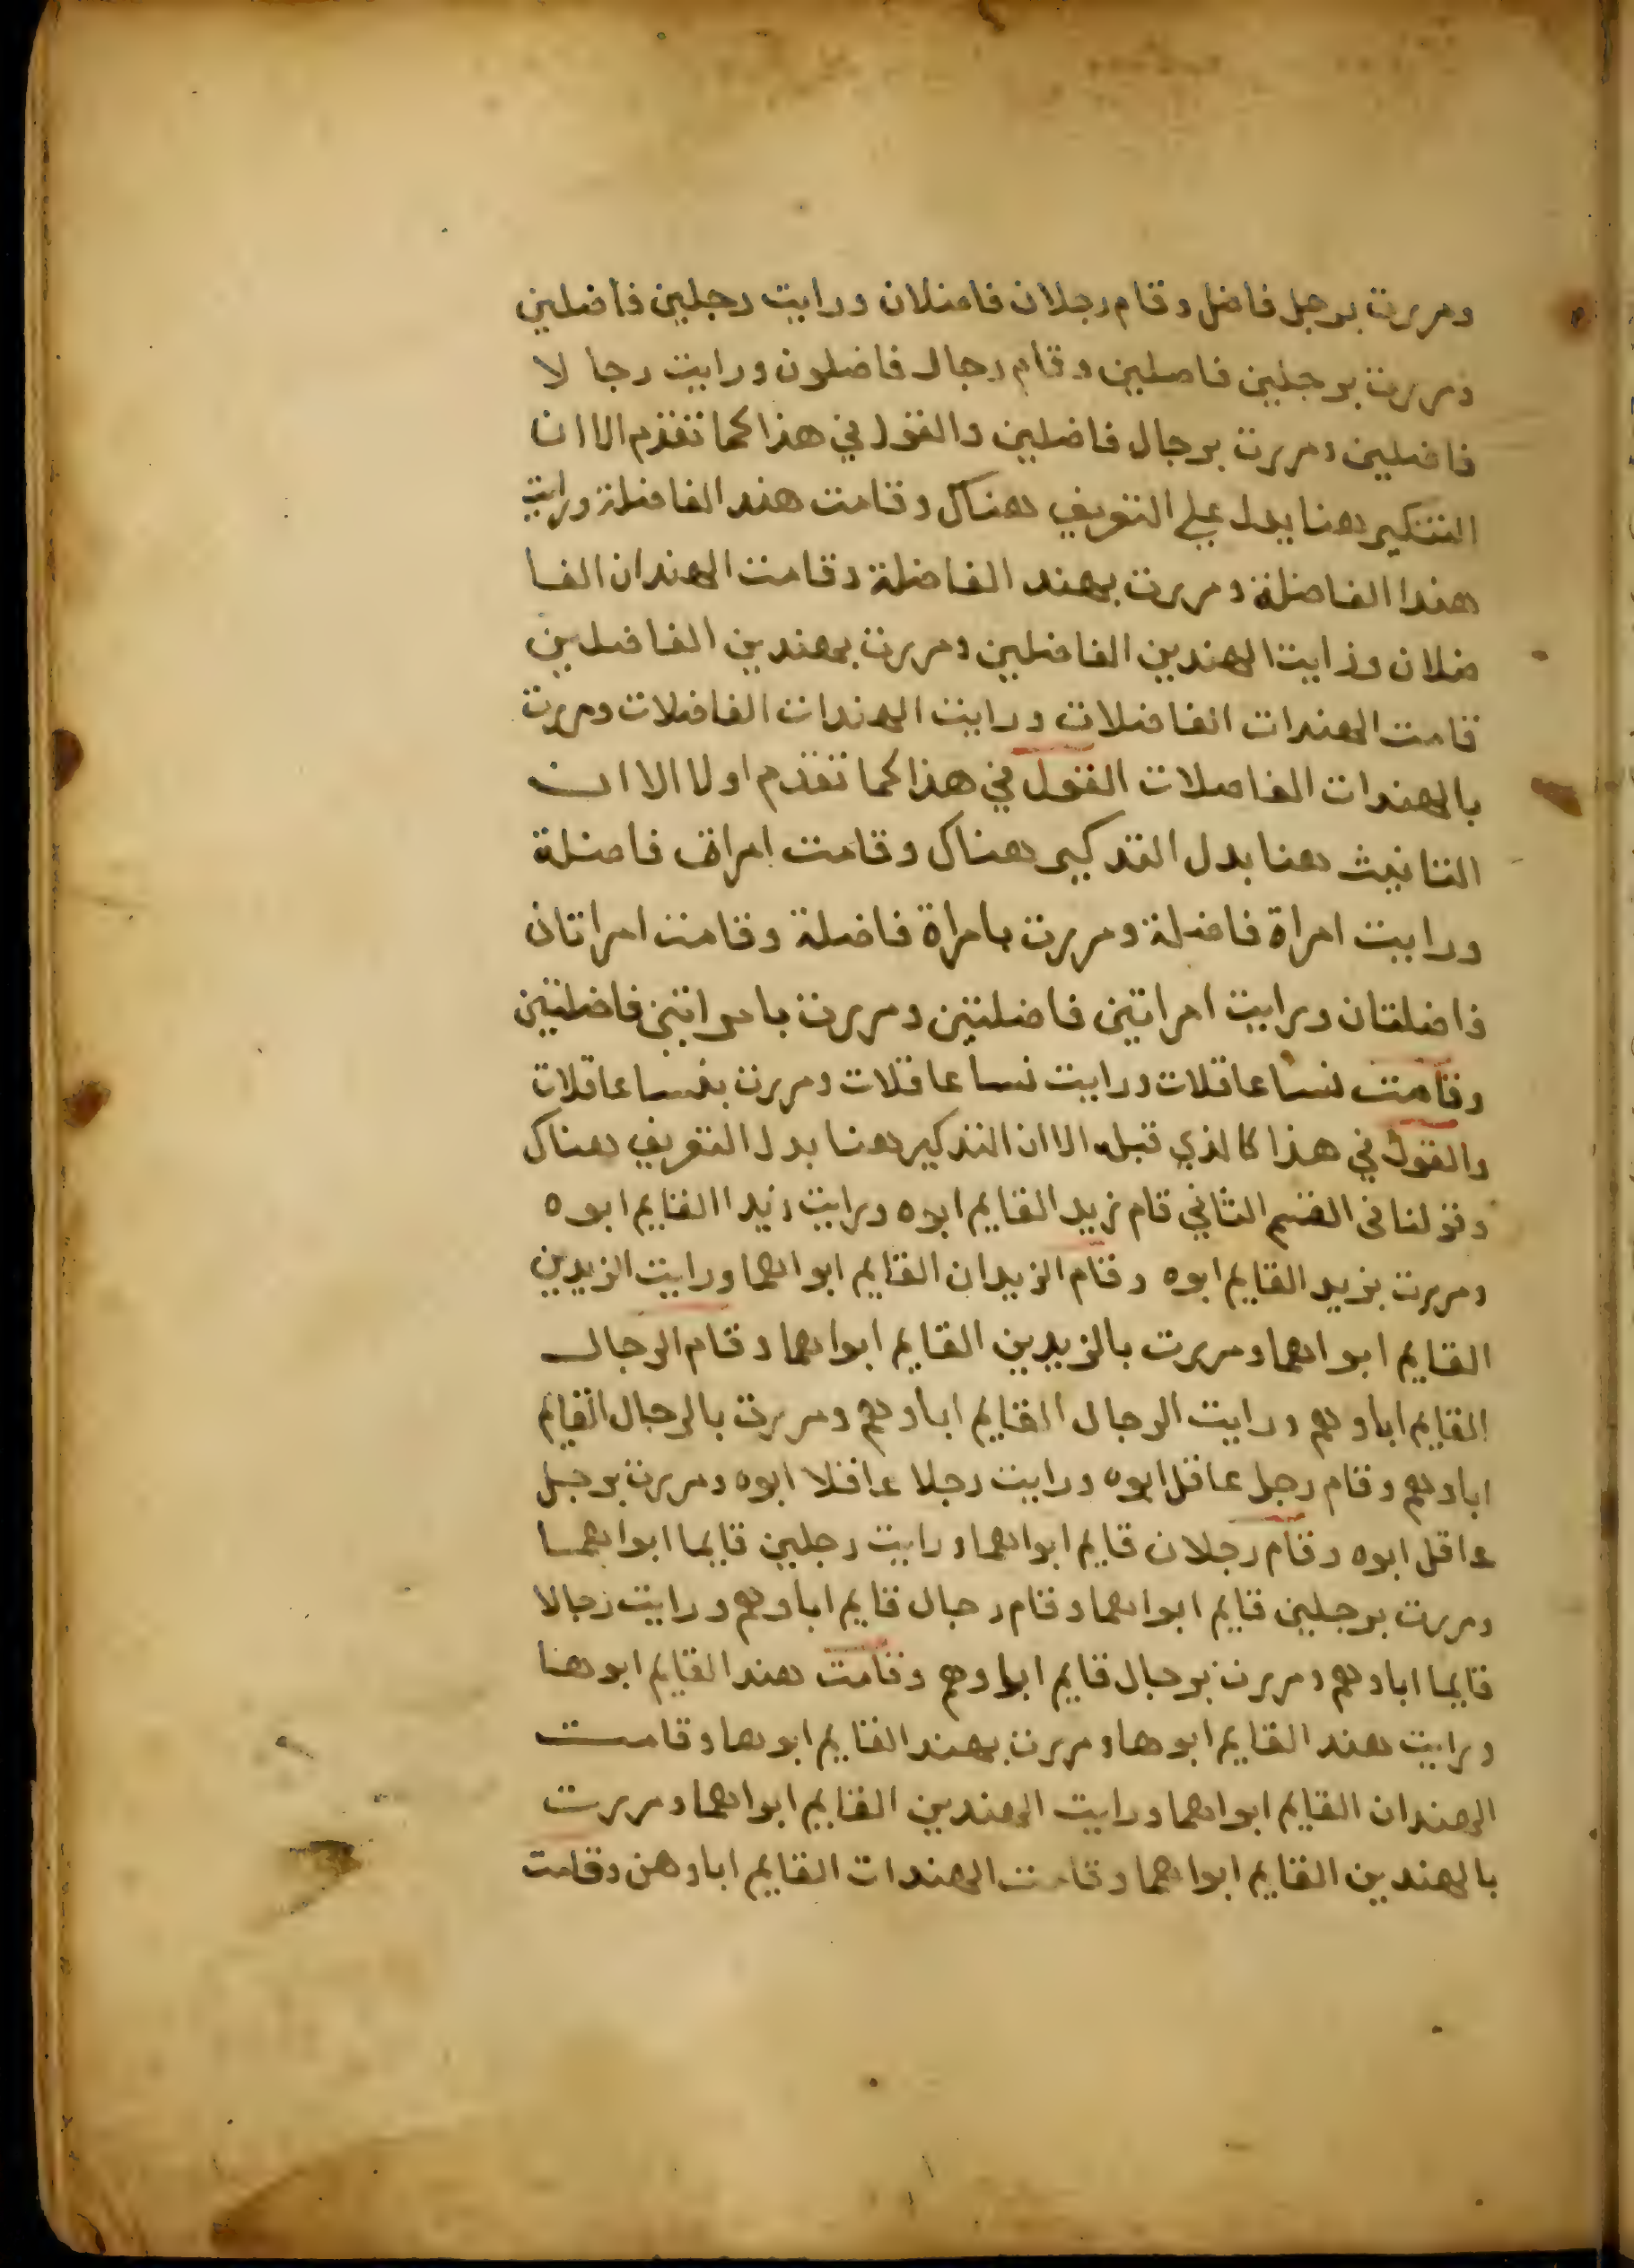 ومررت برجل فاضل وقام رجلان فاضلان ورايت رجلين فاضلين
ومررت برجلين فاضلين وقام رجال فاضلون ورايت رجا لا
فاضلين ومررت برجال فاضلين والقول في هذا كما تقدم الا ان
التنكير هنا يدل علي التعريف هناك وقامت هند الفاضلة ورايت
هندا الفاضلة ومررت بهند الفاضلة وقامت الهندان الفا
ضلان ورايت الهندين الفاضلين ومررت بهندين الفاضلين
قامت الهندات الفاضلات ورايت الهندات الفاضلات ومررت
بالهندات الفاضلات القول في هذا كما تقدم اولا الا ان
التانيث هنا بدل التدكير هناك وقامت امراة فاضلة
ورايت امراة فاضلة ومررت بامراة فاضلة وقامت امراتان
فاضلتان ورايت امراتين فاضلتين ومررت بامراتين فاضلتين
وقامت نسا عاقلات ورايت نسا عاقلات ومررت بنسا عاقلات
والقول في هذا كالذي قبله الا ان التدكير هنا بدل التعريف هناك
وقولنا في القسم الثاني قام زيد القايم ابوه ورايت زيدا القايم ابوه
ومررت بزيد القايم ابوه وقام الزيدان القايم ابواهما ورايت الزيدين
القايم ابواهما ومررت بالزيدين القايم ابواهما وقام الرجال
القايم اباوهم ورايت الرجال القايم اباوهم ومررت بالرجال القايم
اباوهم وقام رجل عاقل ابوه ورايت رجلا عاقلا ابوه ومررت برجل
عاقل ابوه وقام رجلان قايم ابواهما ورايت رجلين قايما ابواهما
ومررت برجلين قايم ابواهما وقام رجال قايم اباوهم ورايت رجالا
قايما اباوهم ومررت برجال قايم اباوهم وقامت هند القايم ابوهنا
ورايت هند القايم ابوها ومررت بهند القايم ابوها وقامت
الهندان القايم ابواهما ورايت الهندين القايم ابواهما ومررت
بالهندين القايم ابواهما وقامت الهندات القايم اباوهن وقامت